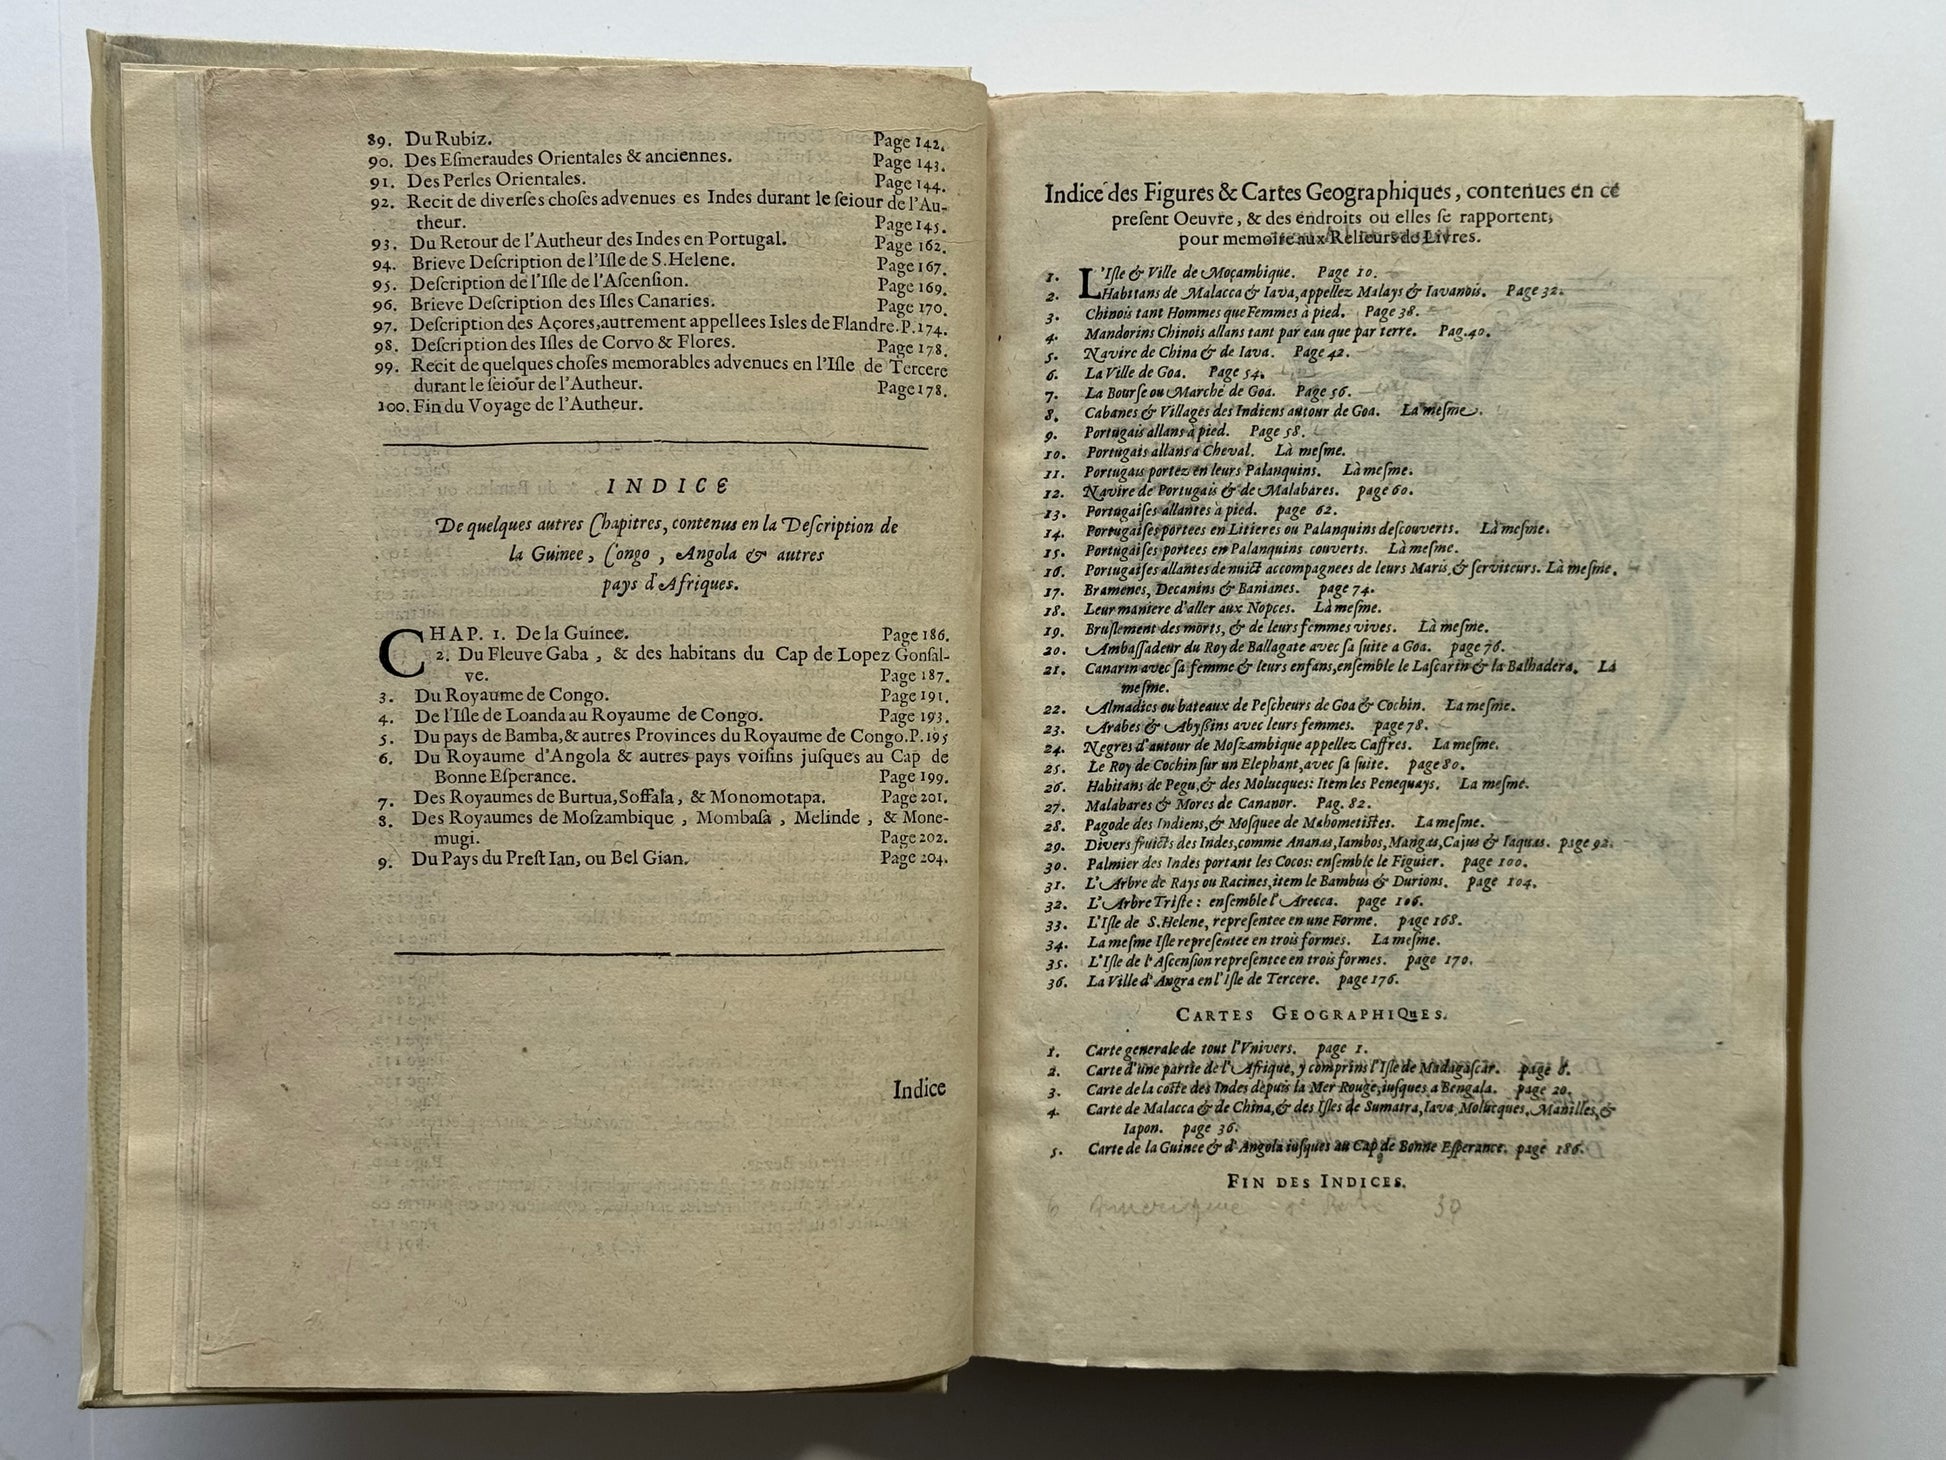 89. Du Rubiz. Page 142.
90. Des Eſmeraudes Orientales & anciennes. Page 143.
91. Des Perles Orientales. Page 144.
92. Recit de diverſes choſes advenues es Indes durant le ſeiour de l'Au-
theur. Page 145.
93. Du Retour de l'Autheur des Indes en Portugal. Page 162.
94. Brieve Deſcription de l'Iſle de S. Helene. Page 167.
95. Deſcription de l'Iſle de l'Aſcenſion. Page 169.
96. Brieve Deſcription des Iſles Canaries. Page 170.
97. Deſcription des Açores, autrement appellees Isles de Flandre. P. 174.
98. Deſcription des Iſles de Corvo & Flores. Page 178.
99. Recit de quelques choſes memorables advenues en l'Iſle de Tercere
durant le ſeiour de l'Autheur. Page 178.
100. Fin du Voyage de l'Autheur.
INDICE
De quelques autres Chapitres, contenus en la Deſcription de
la Guinee, Congo, Angola & autres
pays d'Afriques.
CHAP. 1. De la Guinee. Page 186.
2. Du Fleuve Gaba, & des habitans du Cap de Lopez Gonſal-
ve. Page 187.
3. Du Royaume de Congo. Page 191.
4. De l'Iſle de Loanda au Royaume de Congo. Page 193.
5. Du pays de Bamba, & autres Provinces du Royaume de Congo. P. 195
6. Du Royaume d'Angola & autres pays voiſins juſques au Cap de
Bonne Eſperance. Page 199.
7. Des Royaumes de Burtua, Soffala, & Monomotapa. Page 201.
8. Des Royaumes de Moſzambique, Mombaſa, Melinde, & Mone-
mugi. Page 202.
9. Du Pays du Preſt Ian, ou Bel Gian. Page 204.
Indice
Indice des Figures & Cartes Geographiques, contenues en ce
preſent Oeuvre, & des endroits ou elles ſe rapportent,
pour memoire aux Relieurs de Livres.
1. L'Iſle & Ville de Moçambique. Page 10.
2. Habitans de Malacca & Iava, appellez Malays & Iavanois. Page 32.
3. Chinois tant Hommes que Femmes à pied. Page 38.
4. Mandorins Chinois allans tant par eau que par terre. Pag. 40.
5. Navire de China & de Iava. Page 42.
6. La Ville de Goa. Page 54.
7. La Bourſe ou Marché de Goa. Page 56.
8. Cabanes & Villages des Indiens autour de Goa. La meſme.
9. Portugais allans à pied. Page 58.
10. Portugais allans a Cheval. Là meſme.
11. Portugais portez en leurs Palanquins. Là meſme.
12. Navire de Portugais & de Malabares. page 60.
13. Portugaiſes allantes à pied. page 62.
14. Portugaiſes portees en Litieres ou Palanquins deſcouverts. Là meſme.
15. Portugaiſes portees en Palanquins couverts. Là meſme.
16. Portugaiſes allantes de nuict accompagnees de leurs Maris, & ſerviteurs. Là meſme.
17. Bramenes, Decanins & Banianes. page 74.
18. Leur maniere d'aller aux Nopces. Là meſme.
19. Bruſlement des morts, & de leurs femmes vives. Là meſme.
20. Ambaſſadeur du Roy de Ballagate avec ſa ſuite a Goa. page 76.
21. Canarin avec ſa femme & leurs enfans, enſemble le Laſcarin & la Balhadera. La
meſme.
22. Almadies ou bateaux de Peſcheurs de Goa & Cochin. La meſme.
23. Arabes & Abyſſins avec leurs femmes. page 78.
24. Negres d'autour de Moſzambique appellez Caffres. La meſme.
25. Le Roy de Cochin ſur un Elephant, avec ſa ſuite. page 80.
26. Habitans de Pegu, & des Molucques: Item les Penequays. La meſme.
27. Malabares & Mores de Cananor. Pag. 82.
28. Pagode des Indiens, & Moſquee de Mahometiſtes. La meſme.
29. Divers fruicts des Indes, comme Ananas, Iambos, Mangas, Cajus & Iaquas. page 92.
30. Palmier des Indes portant les Cocos: enſemble le Figuier. page 100.
31. L'Arbre de Rays ou Racines, item le Bambus & Durions. page 104.
32. L'Arbre Triſte: enſemble l'Arecca. page 106.
33. L'Iſle de S. Helene, repreſentee en une Forme. page 168.
34. La meſme Iſle repreſentee en trois formes. La meſme.
35. L'Iſle de l'Aſcenſion repreſentee en trois formes. page 170.
36. La Ville d'Angra en l'Iſle de Tercere. page 176.
CARTES GEOGRAPHIQUES.
1. Carte generale de tout l'Vnivers. page 1.
2. Carte d'une partie de l'Afrique, y comprins l'Iſle de Madagaſcar. page 8.
3. Carte de la coſte des Indes depuis la Mer Rouge, iuſques a Bengala. page 20.
4. Carte de Malacca & de China, & des Iſles de Sumatra, Iava, Molucques, Manilles, &
Iapon. page 36.
5. Carte de la Guinee & d'Angola iuſques au Cap de Bonne Eſperance. page 186.
FIN DES INDICES.
6 Amerique